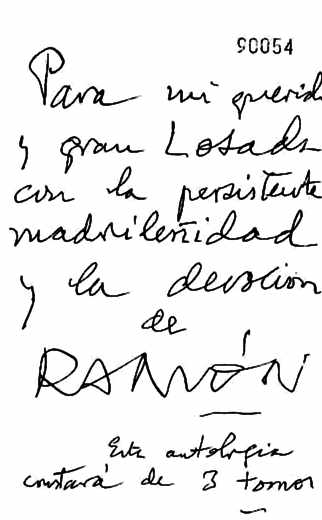 90054
Para mi querid
y gran Losada
con la persistente
madrileñidad
y la devoción
de
RAMÓN
Esta antología
constará de 3 tomos